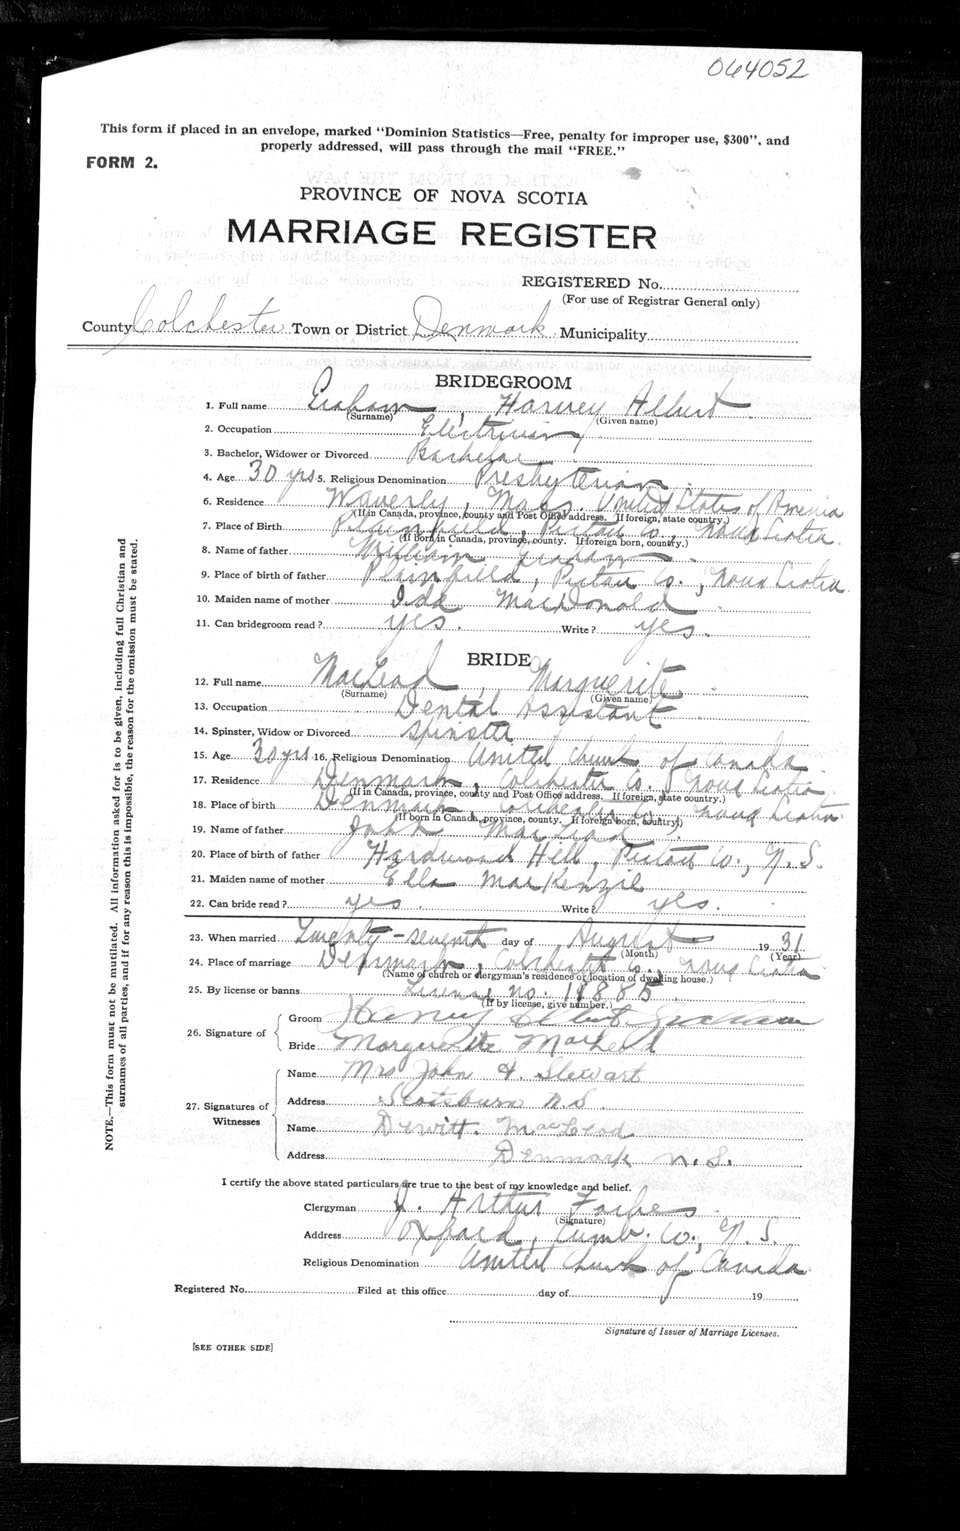 064052
This form if placed in an envelope, marked "Dominion Statistics—Free, penalty for improper use, $300", and
properly addressed, will pass through the mail "FREE."
FORM 2.
PROVINCE OF NOVA SCOTIA
MARRIAGE REGISTER
REGISTERED No.
(For use of Registrar General only)
County Colchester Town or District Denmark Municipality
BRIDEGROOM
1. Full name Graham, Harvey Albert
(Surname) (Given name)
2. Occupation Electrician
3. Bachelor, Widower or Divorced Bachelor
4. Age 30 yrs 5. Religious Denomination Presbyterian
6. Residence Waverly, Mass. United States of America
(If in Canada, province, county and Post Office address. If foreign, state country.)
7. Place of Birth Plainfield, Pictou Co., Nova Scotia
(If born in Canada, province, county. If foreign born, country.)
8. Name of father William Graham
9. Place of birth of father Plainfield, Pictou Co., Nova Scotia
10. Maiden name of mother Ida MacDonald
11. Can bridegroom read? yes. Write? yes.
BRIDE
12. Full name MacLeod, Marguerite
(Surname) (Given name)
13. Occupation Dental Assistant
14. Spinster, Widow or Divorced Spinster
15. Age 30 yrs 16. Religious Denomination United Church of Canada
17. Residence Denmark, Colchester Co. Nova Scotia
(If in Canada, province, county and Post Office address. If foreign, state country.)
18. Place of birth Denmark, Colchester Co., Nova Scotia
(If born in Canada, province, county. If foreign born, country.)
19. Name of father John MacLeod
20. Place of birth of father Hardwood Hill, Pictou Co., N. S.
21. Maiden name of mother Ella MacKenzie
22. Can bride read? yes. Write? yes.
23. When married Twenty-seventh day of August 1931
(Month) (Year)
24. Place of marriage Denmark, Colchester Co., Nova Scotia
(Name of church or clergyman's residence or location of dwelling house.)
25. By license or banns License no. 19885
(If by license, give number.)
26. Signature of
Groom Harvey Albert Graham
Bride Marguerite MacLeod
27. Signatures of Witnesses
Name Mrs John H. Stewart
Address Scotsburn N.S.
Name Dewitt MacLeod
Address Denmark N.S.
I certify the above stated particulars are true to the best of my knowledge and belief.
Clergyman J. Arthur Forbes
(Signature)
Address Oxford, Cumb. Co., N. S.
Religious Denomination United Church of Canada
Registered No. Filed at this office day of 19
Signature of Issuer of Marriage Licenses.
[SEE OTHER SIDE]
NOTE.—This form must not be mutilated. All information asked for is to be given, including full Christian and
surnames of all parties, and if for any reason this is impossible, the reason for the omission must be stated.